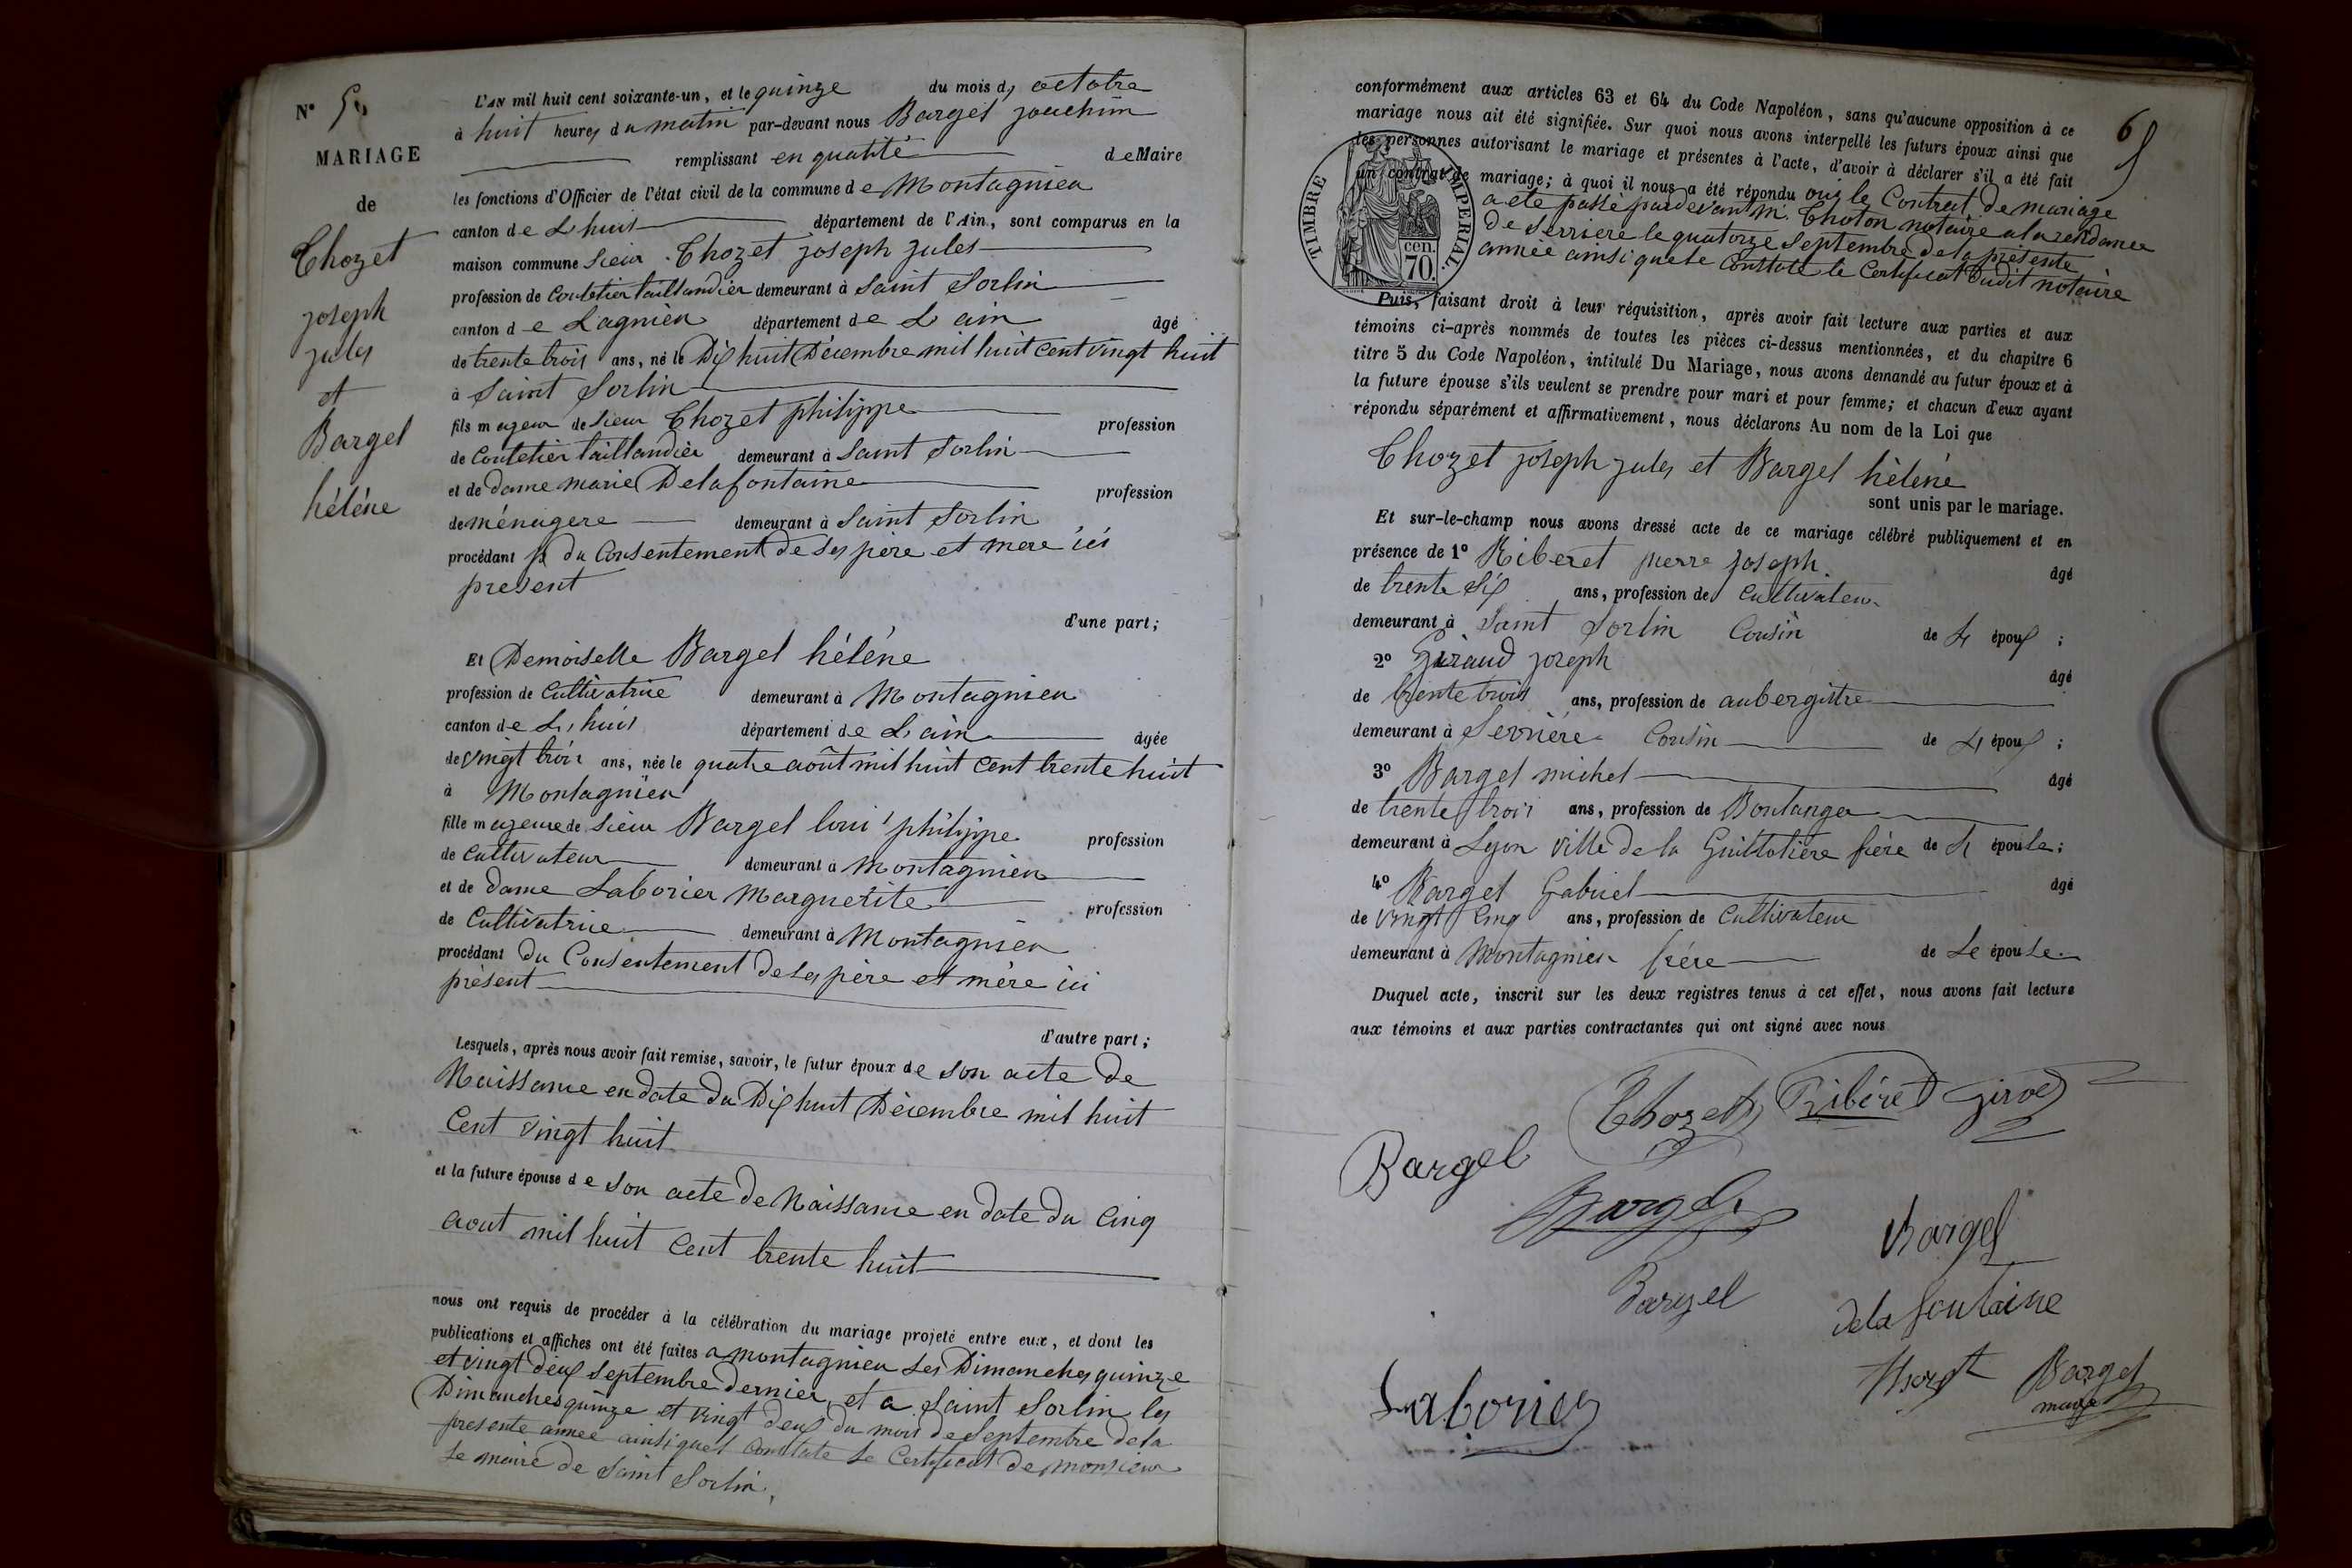 N° 5
MARIAGE
de
Thozet
joseph
jules
et
Bargel
hélène
L'AN mil huit cent soixante-un, et le quinze du mois d octobre
à huit heures du matin par-devant nous Bargel joachim
remplissant en qualité de Maire
les fonctions d'Officier de l'état civil de la commune de Montagnieu
canton de Lhuis département de l'Ain, sont comparus en la
maison commune Sieur Thozet joseph jules
profession de Coutelier taillandier demeurant à Saint Sorlin
canton de Lagnieu département de L'ain âgé
de trente trois ans, né le Dix huit Décembre mil huit cent vingt huit
à Saint Sorlin
fils majeur de Sieur Thozet philippe profession
de Coutelier taillandier demeurant à Saint Sorlin
et de dame marie Delafontaine profession
de ménagere demeurant à Saint Sorlin
procédant du Consentement de ses père et mere ici
present
d'une part;
Et Demoiselle Bargel hélène
profession de Cultivatrice demeurant à Montagnieu
canton de Lhuis département de L'ain âgée
de vingt trois ans, née le quatre août mil huit cent trente huit
à Montagnieu
fille majeure de Sieur Bargel loui philippe profession
de Cultivateur demeurant à Montagnieu
et de dame Laborier Marguerite profession
de Cultivatrice demeurant à Montagnieu
procédant du Consentement de ses père et mère ici
présent
d'autre part;
Lesquels, après nous avoir fait remise, savoir, le futur époux de son acte de
Naissance en date du Dix huit Décembre mil huit
Cent vingt huit
et la future épouse de son acte de Naissance en date du Cinq
aout mil huit Cent trente huit
nous ont requis de procéder à la célébration du mariage projeté entre eux, et dont les
publications et affiches ont été faites a montagnieu les Dimanches quinze
et vingt deux Septembre dernier et a Saint Sorlin les
Dimanches quinze et vingt deux du mois de Septembre de la
presente année ainsi que constate le Certificat de monsieur
le maire de Saint Sorlin.
conformément aux articles 63 et 64 du Code Napoléon, sans qu'aucune opposition à ce
mariage nous ait été signifiée. Sur quoi nous avons interpellé les futurs époux ainsi que
les personnes autorisant le mariage et présentes à l'acte, d'avoir à déclarer s'il a été fait
un contrat de mariage; à quoi il nous a été répondu oui le Contrat de mariage
a eté passé pardevant M. Thoton notaire a la residance
de Serriere le quatorze Septembre de la présente
année ainsi que le constate le Certificat dudit notaire
TIMBRE IMPERIAL
cen.
70.
Puis, faisant droit à leur réquisition, après avoir fait lecture aux parties et aux
témoins ci-après nommés de toutes les pièces ci-dessus mentionnées, et du chapitre 6
titre 5 du Code Napoléon, intitulé Du Mariage, nous avons demandé au futur époux et à
la future épouse s'ils veulent se prendre pour mari et pour femme; et chacun d'eux ayant
répondu séparément et affirmativement, nous déclarons Au nom de la Loi que
Thozet joseph jules et Bargel hélène
sont unis par le mariage.
Et sur-le-champ nous avons dressé acte de ce mariage célébré publiquement et en
présence de 1° Riberet pierre joseph âgé
de trente Six ans, profession de Cultivateur
demeurant à Saint Sorlin Cousin de L époux ;
2° Giraud joseph âgé
de trente trois ans, profession de aubergiste
demeurant à Serrière Cousin de L époux ;
3° Bargel michel âgé
de trente trois ans, profession de Boulanger
demeurant à Lyon ville de la Guillotière frère de L épouse ;
4° Bargel Gabriel âgé
de Vingt Cinq ans, profession de Cultivateur
demeurant à Montagnieu frère de Le épouse
Duquel acte, inscrit sur les deux registres tenus à cet effet, nous avons fait lecture
aux témoins et aux parties contractantes qui ont signé avec nous
Thozet Ribéret
Bargel
Bargel
Bargel
Bargel
delafontaine
Laborier
Bargel
maire